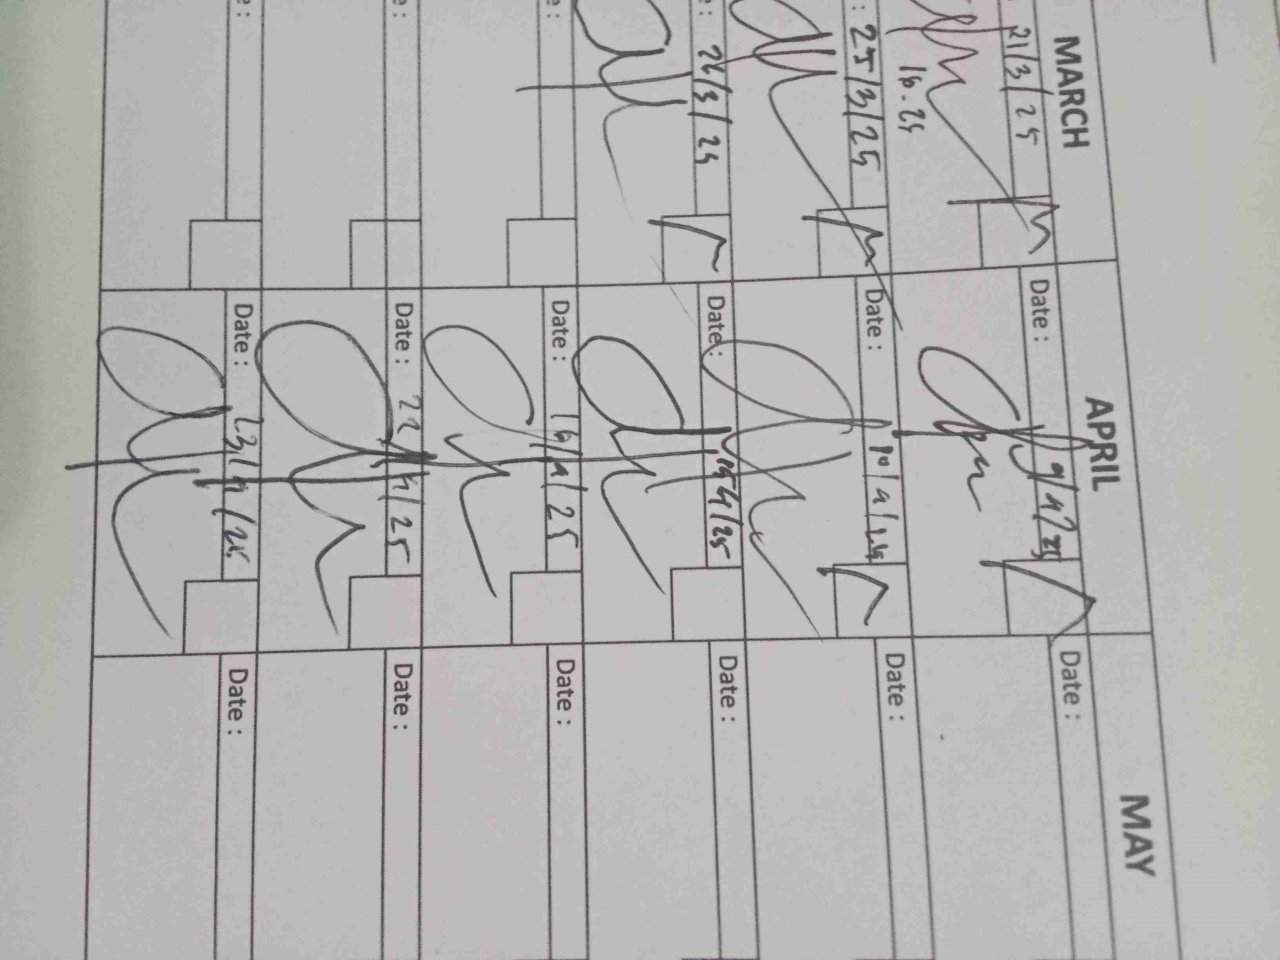 MARCH APRIL MAY
21/3/25 Date : 9/4/25 Date :
16.25
: 25/3/25 Date : 10/4/25 Date :
e : 26/3/25 Date : 15/4/25 Date :
e : Date : 16/4/25 Date :
e : Date : 22/4/25 Date :
e : Date : 23/4/25 Date :